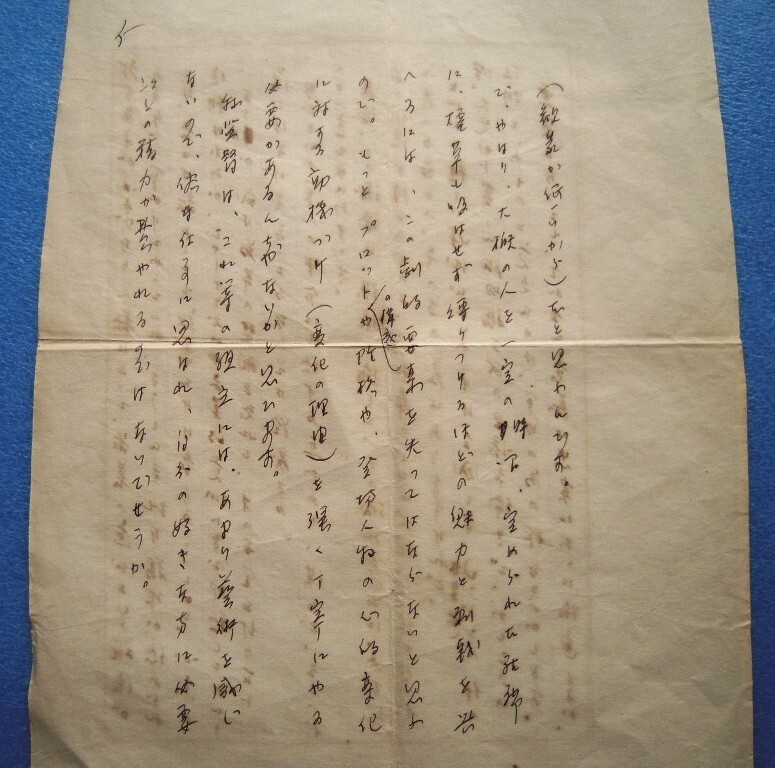 （観衆が低いから）だと思わんです。
で、やはり、大概の人を一定の時間、定められた
に、煙草も吸はせず縛りつけるほどの魅力と刺戟を与
へるには、この劇的要素を失ってはならないと思ふ
ので。もっとプロットの構想や性格や、登場人物の心的変化
に対する動機づけ（変化の理由）を強く丁寧にやる
必要があるんぢゃないかと思ひます。
監督は、これ等の組立には、あまり藝術を感じ
ないので、俗な仕事に思はれ、自分の好きな方に必要
以上の精力が費やされるのではないでせうか。